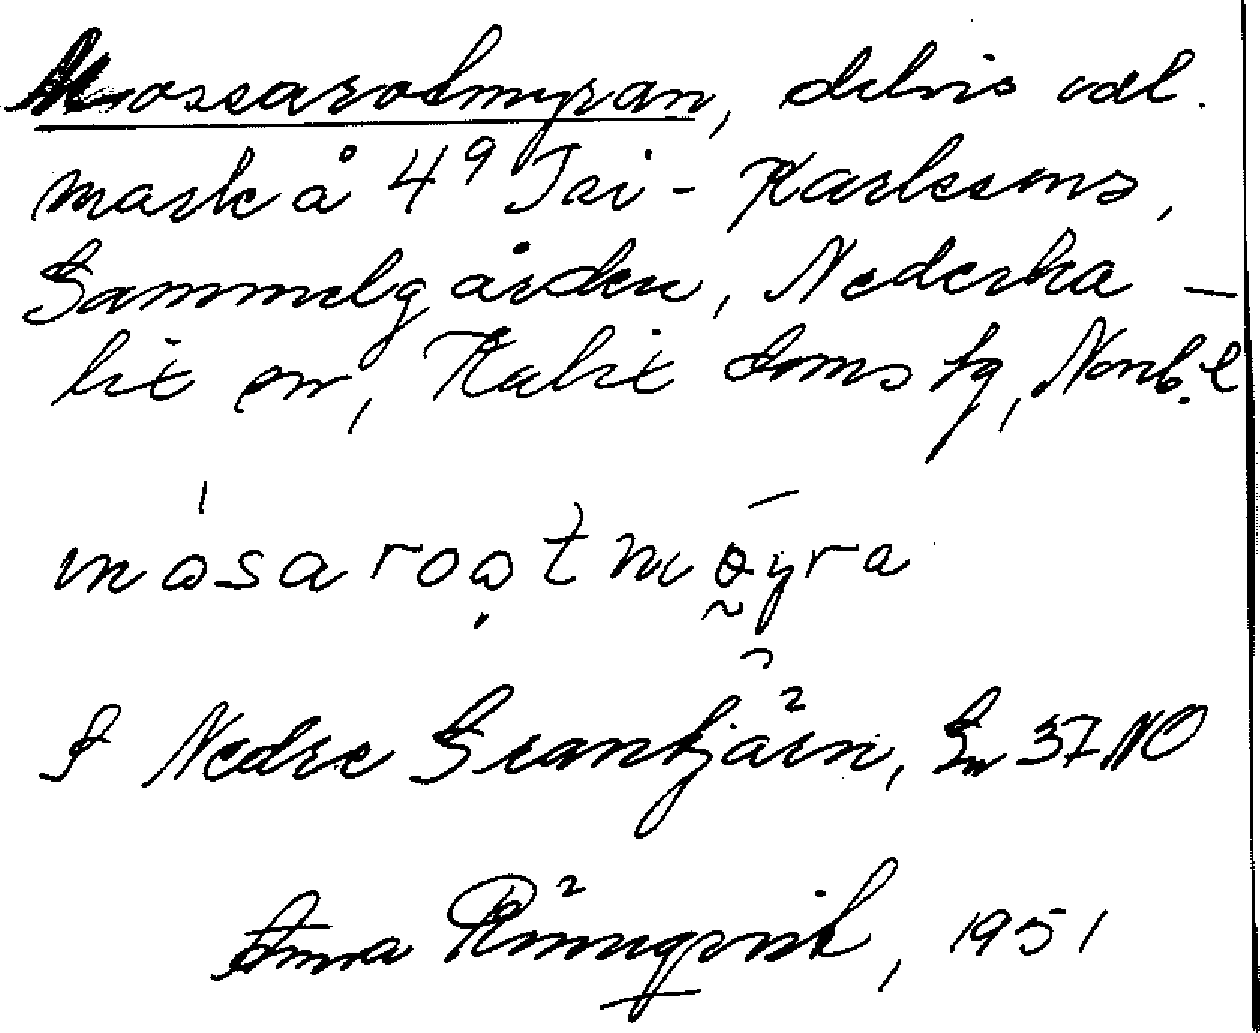 Mossarotmyran, delvis odl.
mark å 4⁹ Jai-Karlssons,
Gammelgården, Nederka-
lix sn, Kalix doms tg, Norrb. l
måsaroọtmøyra
S Nedre Grantjärn, Gn 37 NO
Anna Rönnqvist, 1951